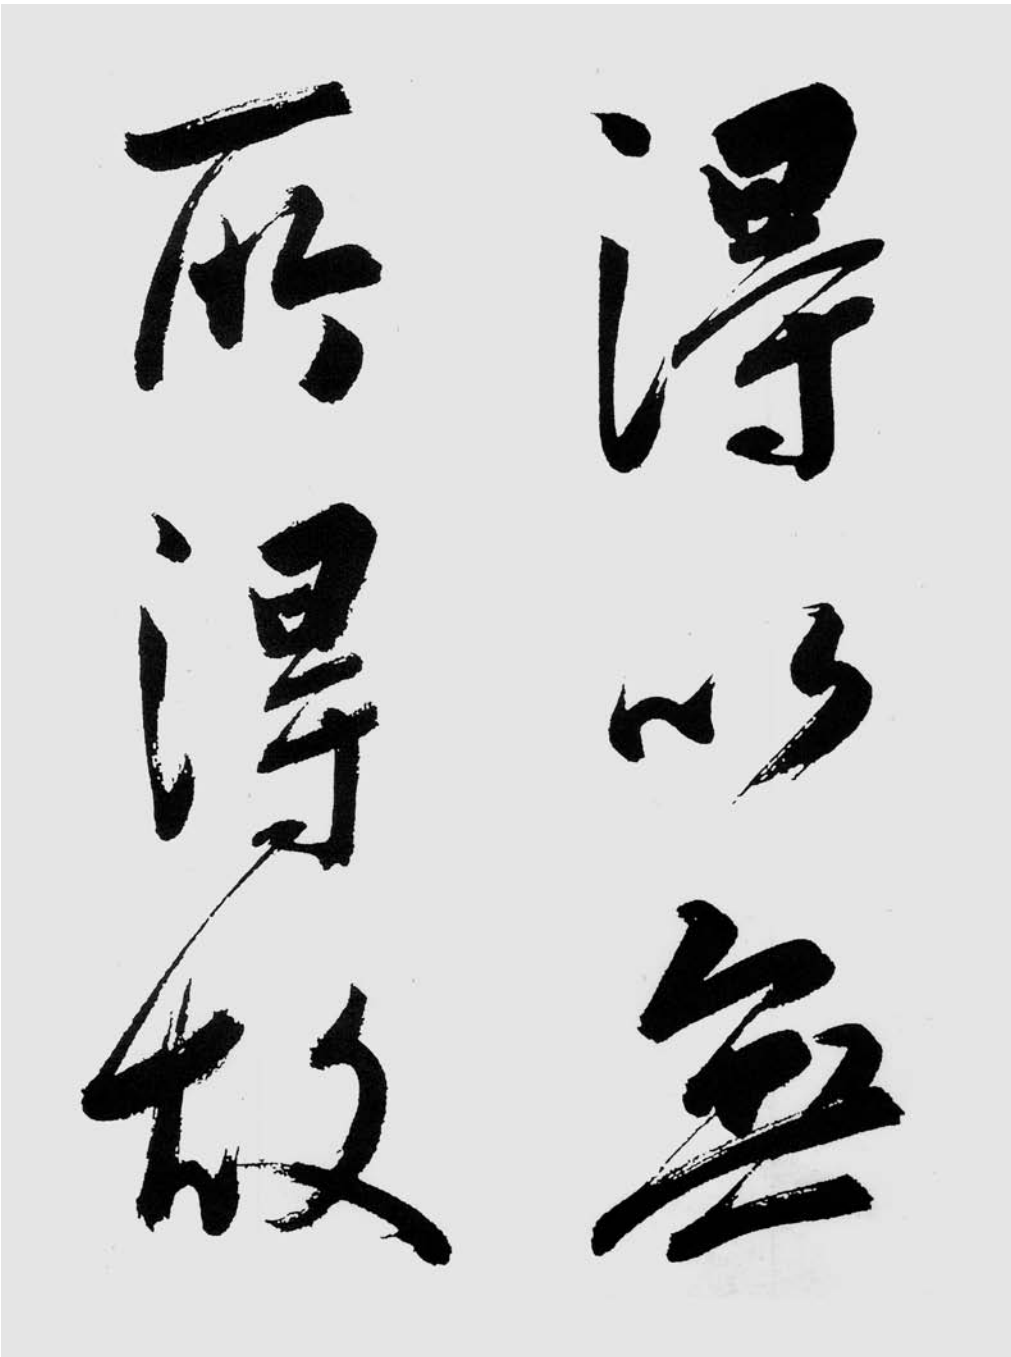 得以無
所得故